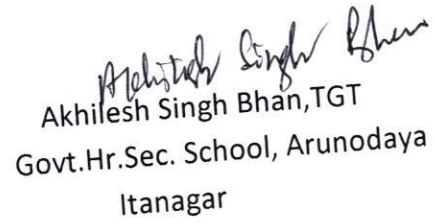 Akhilesh Singh Bhan
Akhilesh Singh Bhan,TGT
Govt.Hr.Sec. School, Arunodaya
Itanagar